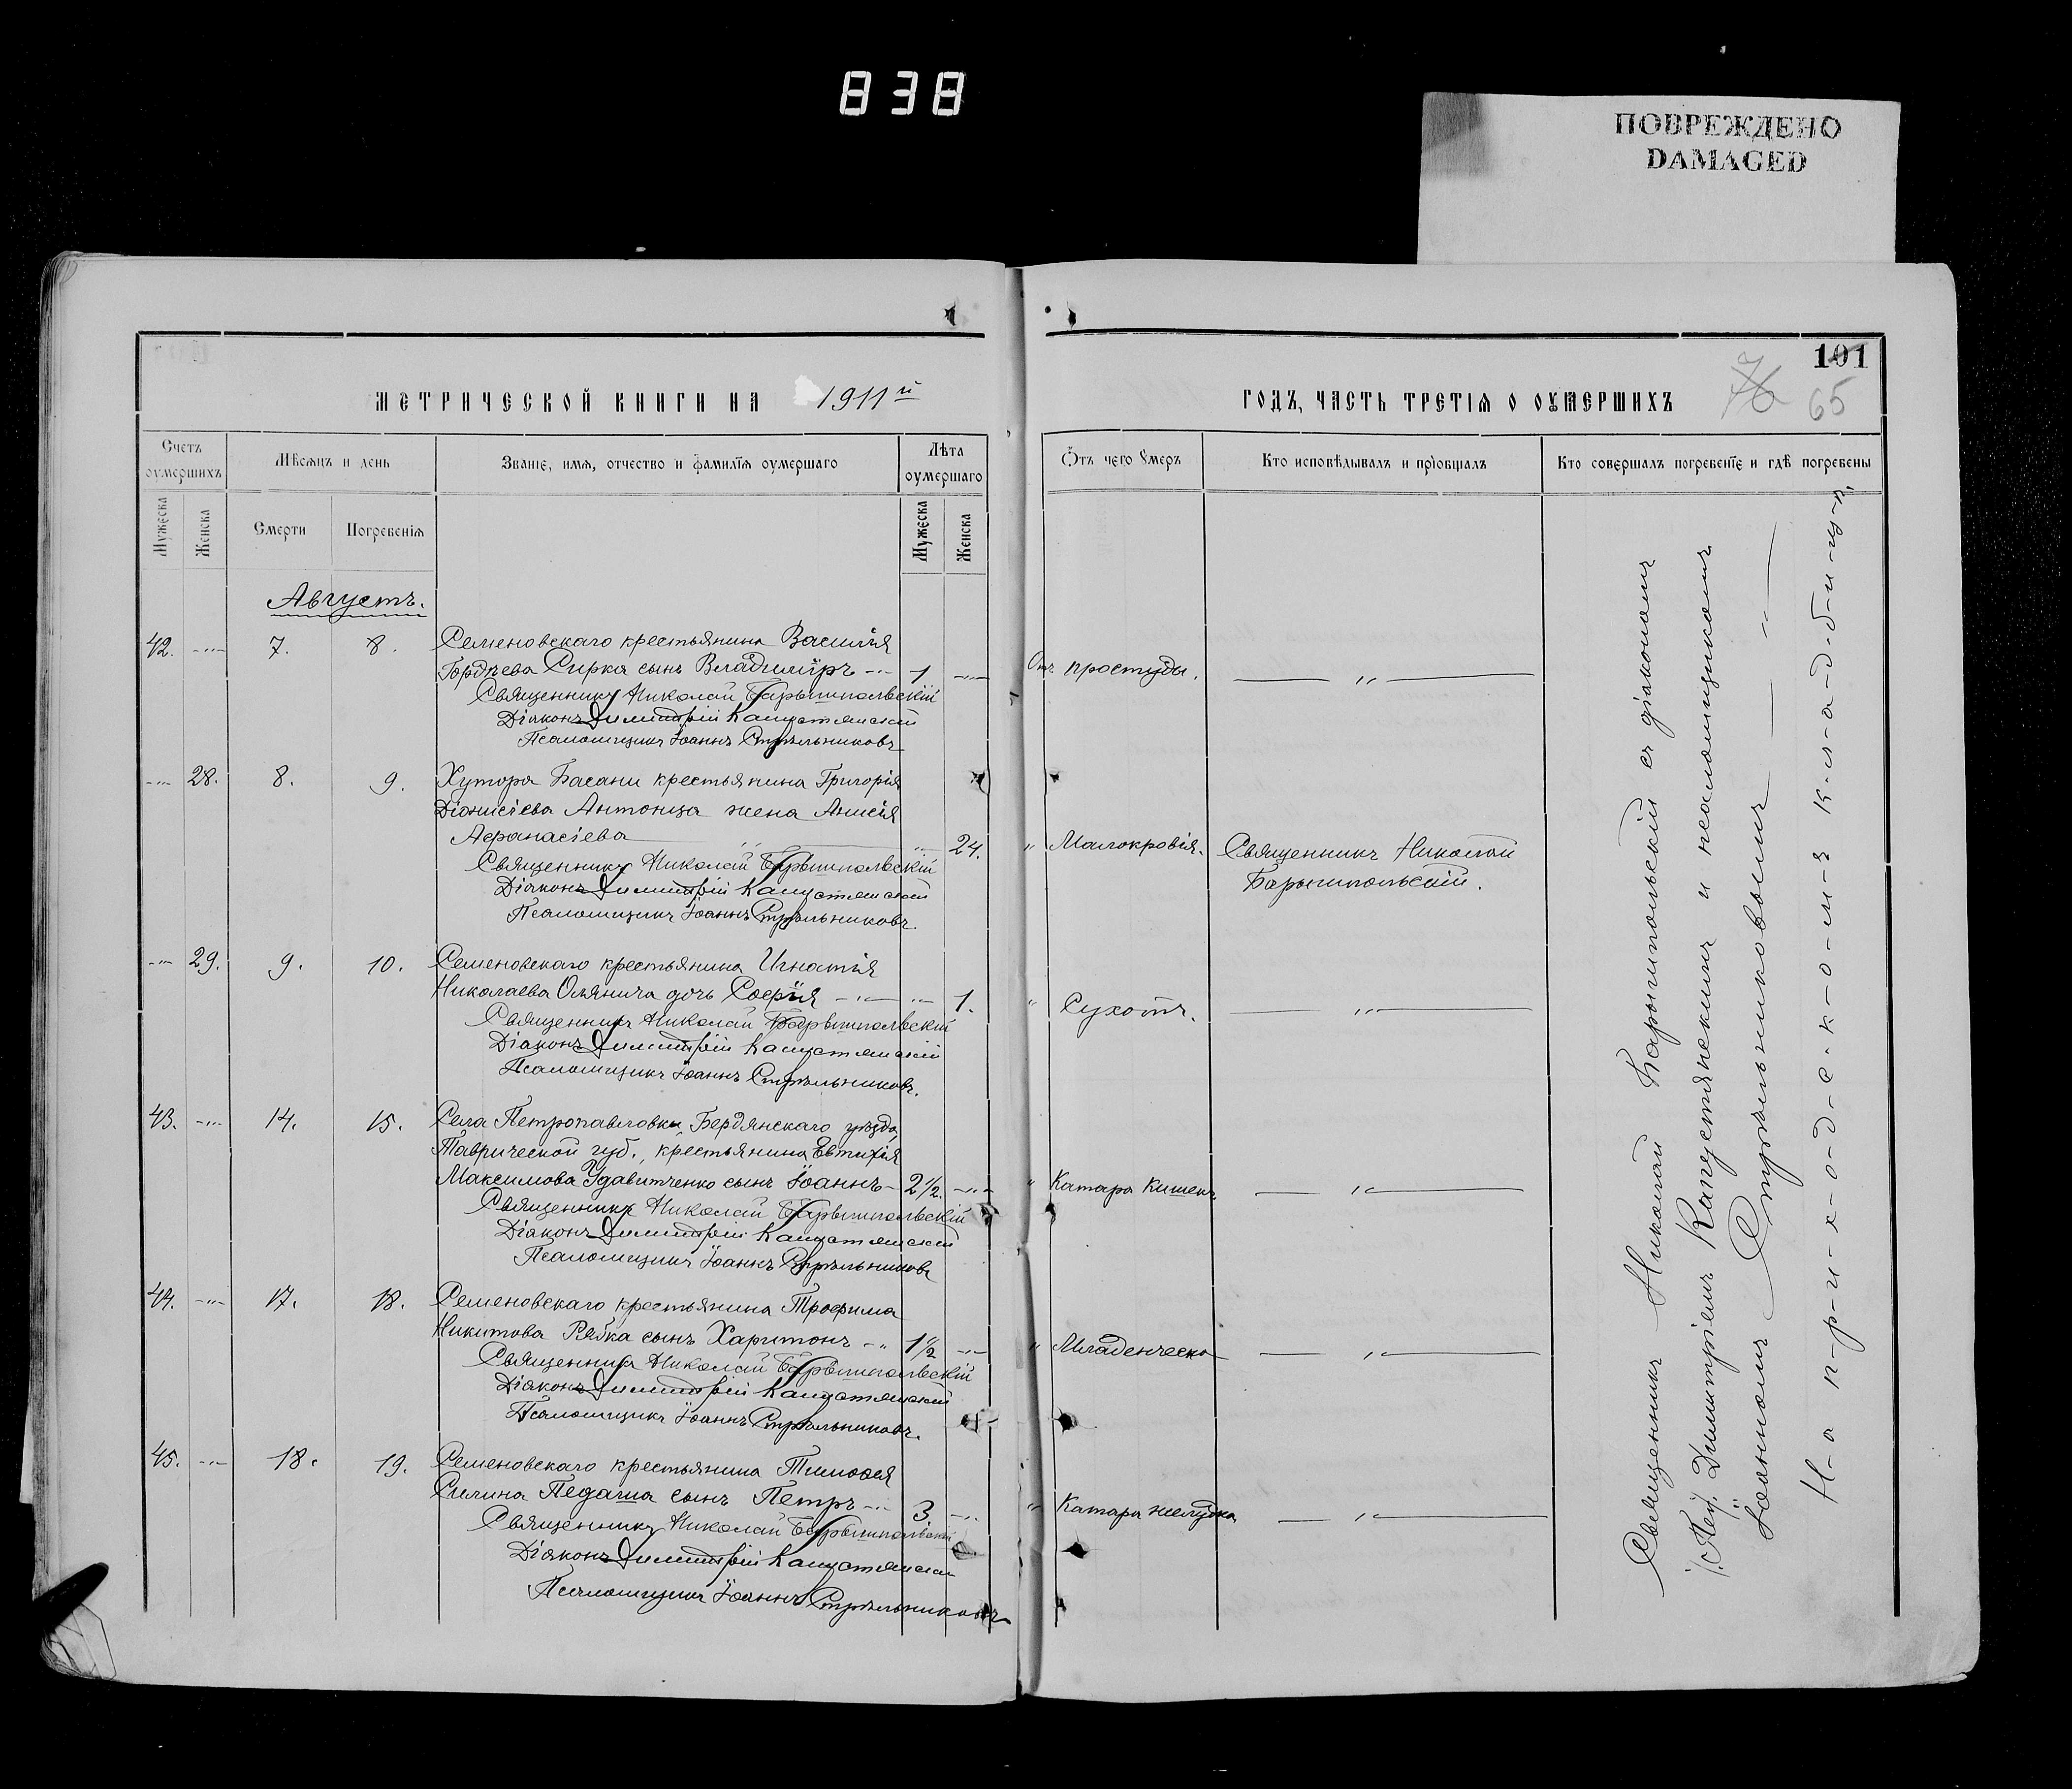 838
ПОВРЕЖДЕНО
DAMAGED
МЕТРИЧЕСКОЙ КНИГИ НА 1911й
Счетъ оумершихъ
Мѣсяцъ и день
Званїе, имя, отчество и фамилїя оумершаго
Лѣта оумершаго
Мужеска
Женска
Смерти
Погребенїя
Мужеска
Женска
Августъ.
42. -"- 7. 8. Семеновскаго крестьянина Василія
Гордѣева Сирка сынъ Владиміръ -"- 1 -"-
Священникъ Николай Барышпольскій
Діаконъ Димитрій Капустянскій
Псаломщикъ Іоаннъ Стрѣльниковъ
-"- 28. 8. 9. Хутора Басани крестьянина Григорія
Діонисіева Антонца жена Анисія
Аѳанасіева " " 24.
Священникъ Николай Барышпольскій
Діаконъ Димитрій Капустянскій
Псаломщикъ Іоаннъ Стрѣльниковъ.
-"- 29. 9. 10. Семеновскаго крестьянина Игнатія
Николаева дочь Софія -"- -"- 1.
Священникъ Николай Барышпольскій
Діаконъ Димитрій Капустянскій
Псаломщикъ Іоаннъ Стрѣльниковъ.
43. -"- 14. 15. Села Петропавловки Бердянскаго уѣзда,
Таврической губ., крестьянина Евтихія
Максимова Удавитченко сынъ Іоаннъ - 2½. -"-
Священникъ Николай Барышпольскій
Діаконъ Димитрій Капустянскій
Псаломщикъ Іоаннъ Стрѣльниковъ
44. -"- 17. 18. Семеновскаго крестьянина Трофима
Никитова Рябка сынъ Харитонъ -"- 1½ -"-
Священникъ Николай Барышпольскій
Діаконъ Димитрій Капустянскій
Псаломщикъ Іоаннъ Стрѣльниковъ.
45. -"- 18. 19. Семеновскаго крестьянина Тимоѳея
Силина Педаша сынъ Петръ -"- 3. -"-
Священникъ Николай Барышпольскій
Діаконъ Димитрій Капустянскій
Псаломщикъ Іоаннъ Стрѣльниковъ
101
76
65
ГОДЪ, ЧАСТЬ ТРЕТІЯ О ОУМЕРШИХЪ
Ѿтъ чего оумеръ
Кто исповѣдывалъ и прїобщалъ
Кто совершалъ погребенїе и гдѣ погребены
Отъ простуды. — " —
" Малокровія. Священникъ Николай
Барышпольскій.
" Сухотъ. — " —
" Катара кишекъ — " —
" Младенческо — " —
" Катара желудка — " —
Священникъ Николай Барышпольскій съ діакономъ
Димитріемъ Капустянскимъ и псаломщикомъ
Іоанномъ Стрѣльниковымъ — " —
Н-а п-р-и-х-о-д-с-к-о-м-ъ к-л-а-д-б-и-щ-ѣ.